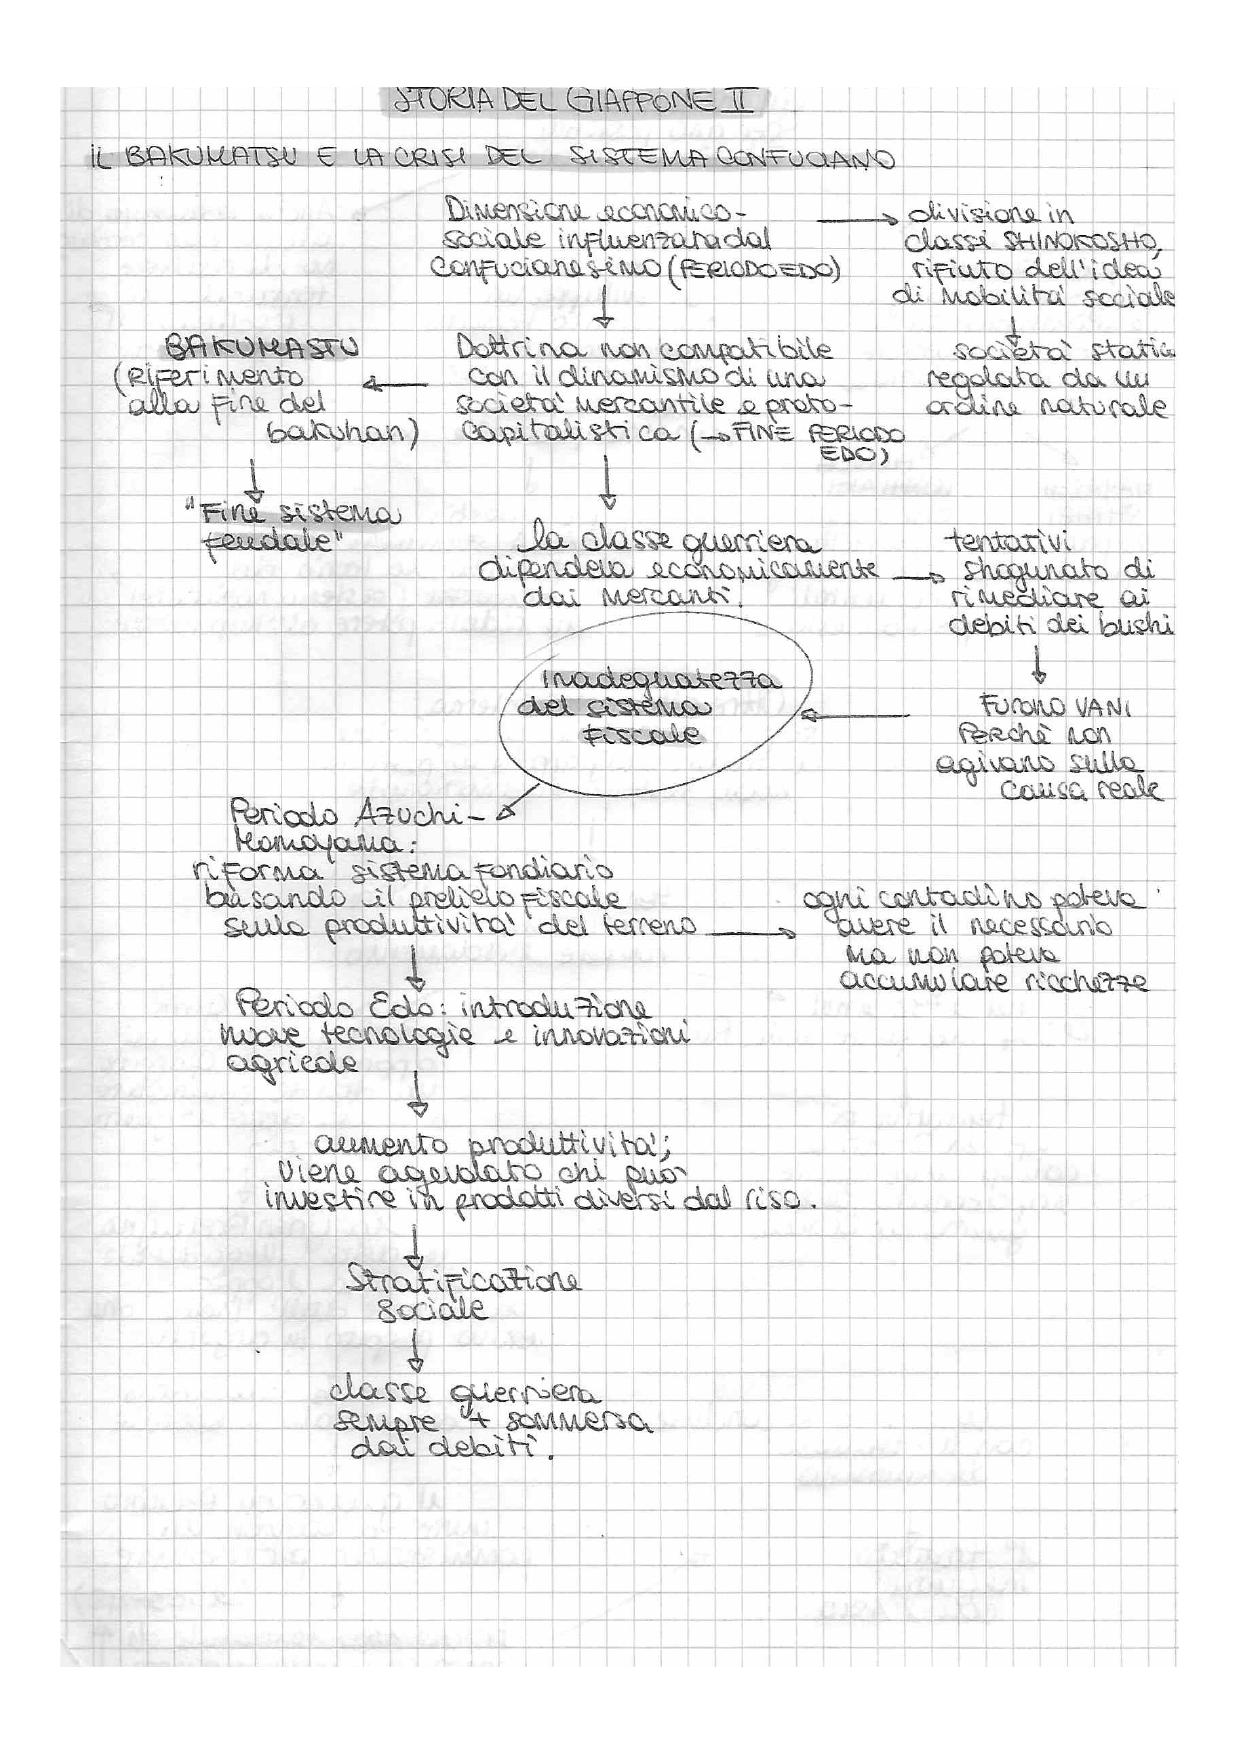 STORIA DEL GIAPPONE II
IL BAKUMATSU E LA CRISI DEL SISTEMA CONFUCIANO
Dimensione economico-
sociale influenzara dal
confucianesimo (PERIODO EDO)
→ divisione in
classi SHINOKOSHO,
rifiuto dell'idea
di mobilità sociale
↓
società statica
regolata da un
ordine naturale
↓
Dottrina non compatibile
con il dinamismo di una
società mercantile e proto-
capitalistica (→ FINE PERIODO
EDO)
← BAKUMASTU
(riferimento
alla fine del
bakuhan)
↓
"Fine sistema
feudale"
↓
la classe guerriera
dipendeva economicamente
dai mercanti.
→ tentativi
shogunato di
rimediare ai
debiti dei bushi
↓
FURONO VANI
PERCHÈ non
agivano sulla
causa reale
←
Inadeguatezza
del sistema
fiscale
Periodo Azuchi-
Momoyama:
riforma sistema fondiario
basando il prelievo fiscale
sulla produttività del terreno
→ ogni contadino poteva
avere il necessario
ma non poteva
accumulare ricchezze
↓
Periodo Edo: introduzione
nuove tecnologie e innovazioni
agricole
↓
aumento produttività;
viene agevolato chi può
investire in prodotti diversi dal riso.
↓
Stratificazione
sociale
↓
classe guerriera
sempre + sommersa
dai debiti.